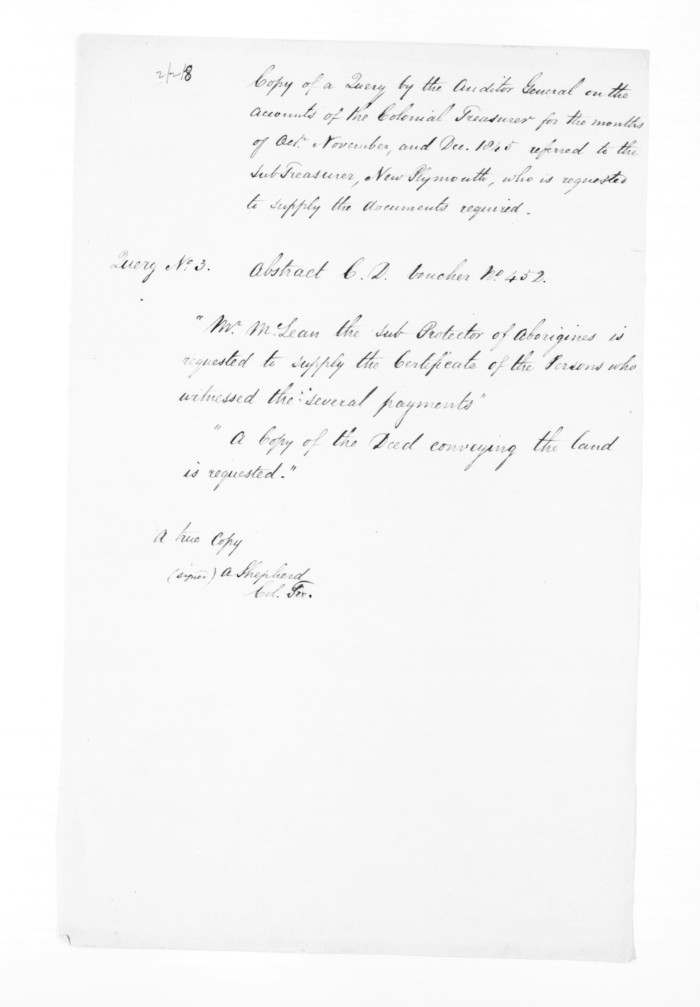 2/2/8
Copy of a Query by the Auditor General on the
accounts of the Colonial Treasurer for the months
of Oct. November, and Dec. 1845 referred to the
Sub Treasurer, New Plymouth, who is requested
to supply the documents required.
Query No 3. Abstract C. D. Voucher No. 452.
"Mr. McLean the Sub Protector of Aborigines is
requested to supply the Certificate of the Persons who
witnessed the "several payments"
"A Copy of the Deed conveying the land
is requested."
A true Copy
(signed) A Shepherd
Col. Tre.